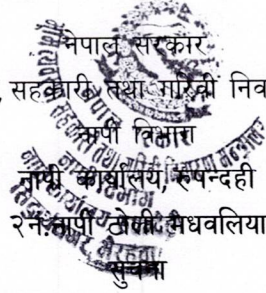 नेपाल सरकार
, सहकारी तथा गरिवी निव
नापी विभाग
नापी कार्यालय, रुपन्देही
२नं. नापी टोली मधवलिया
सुचना